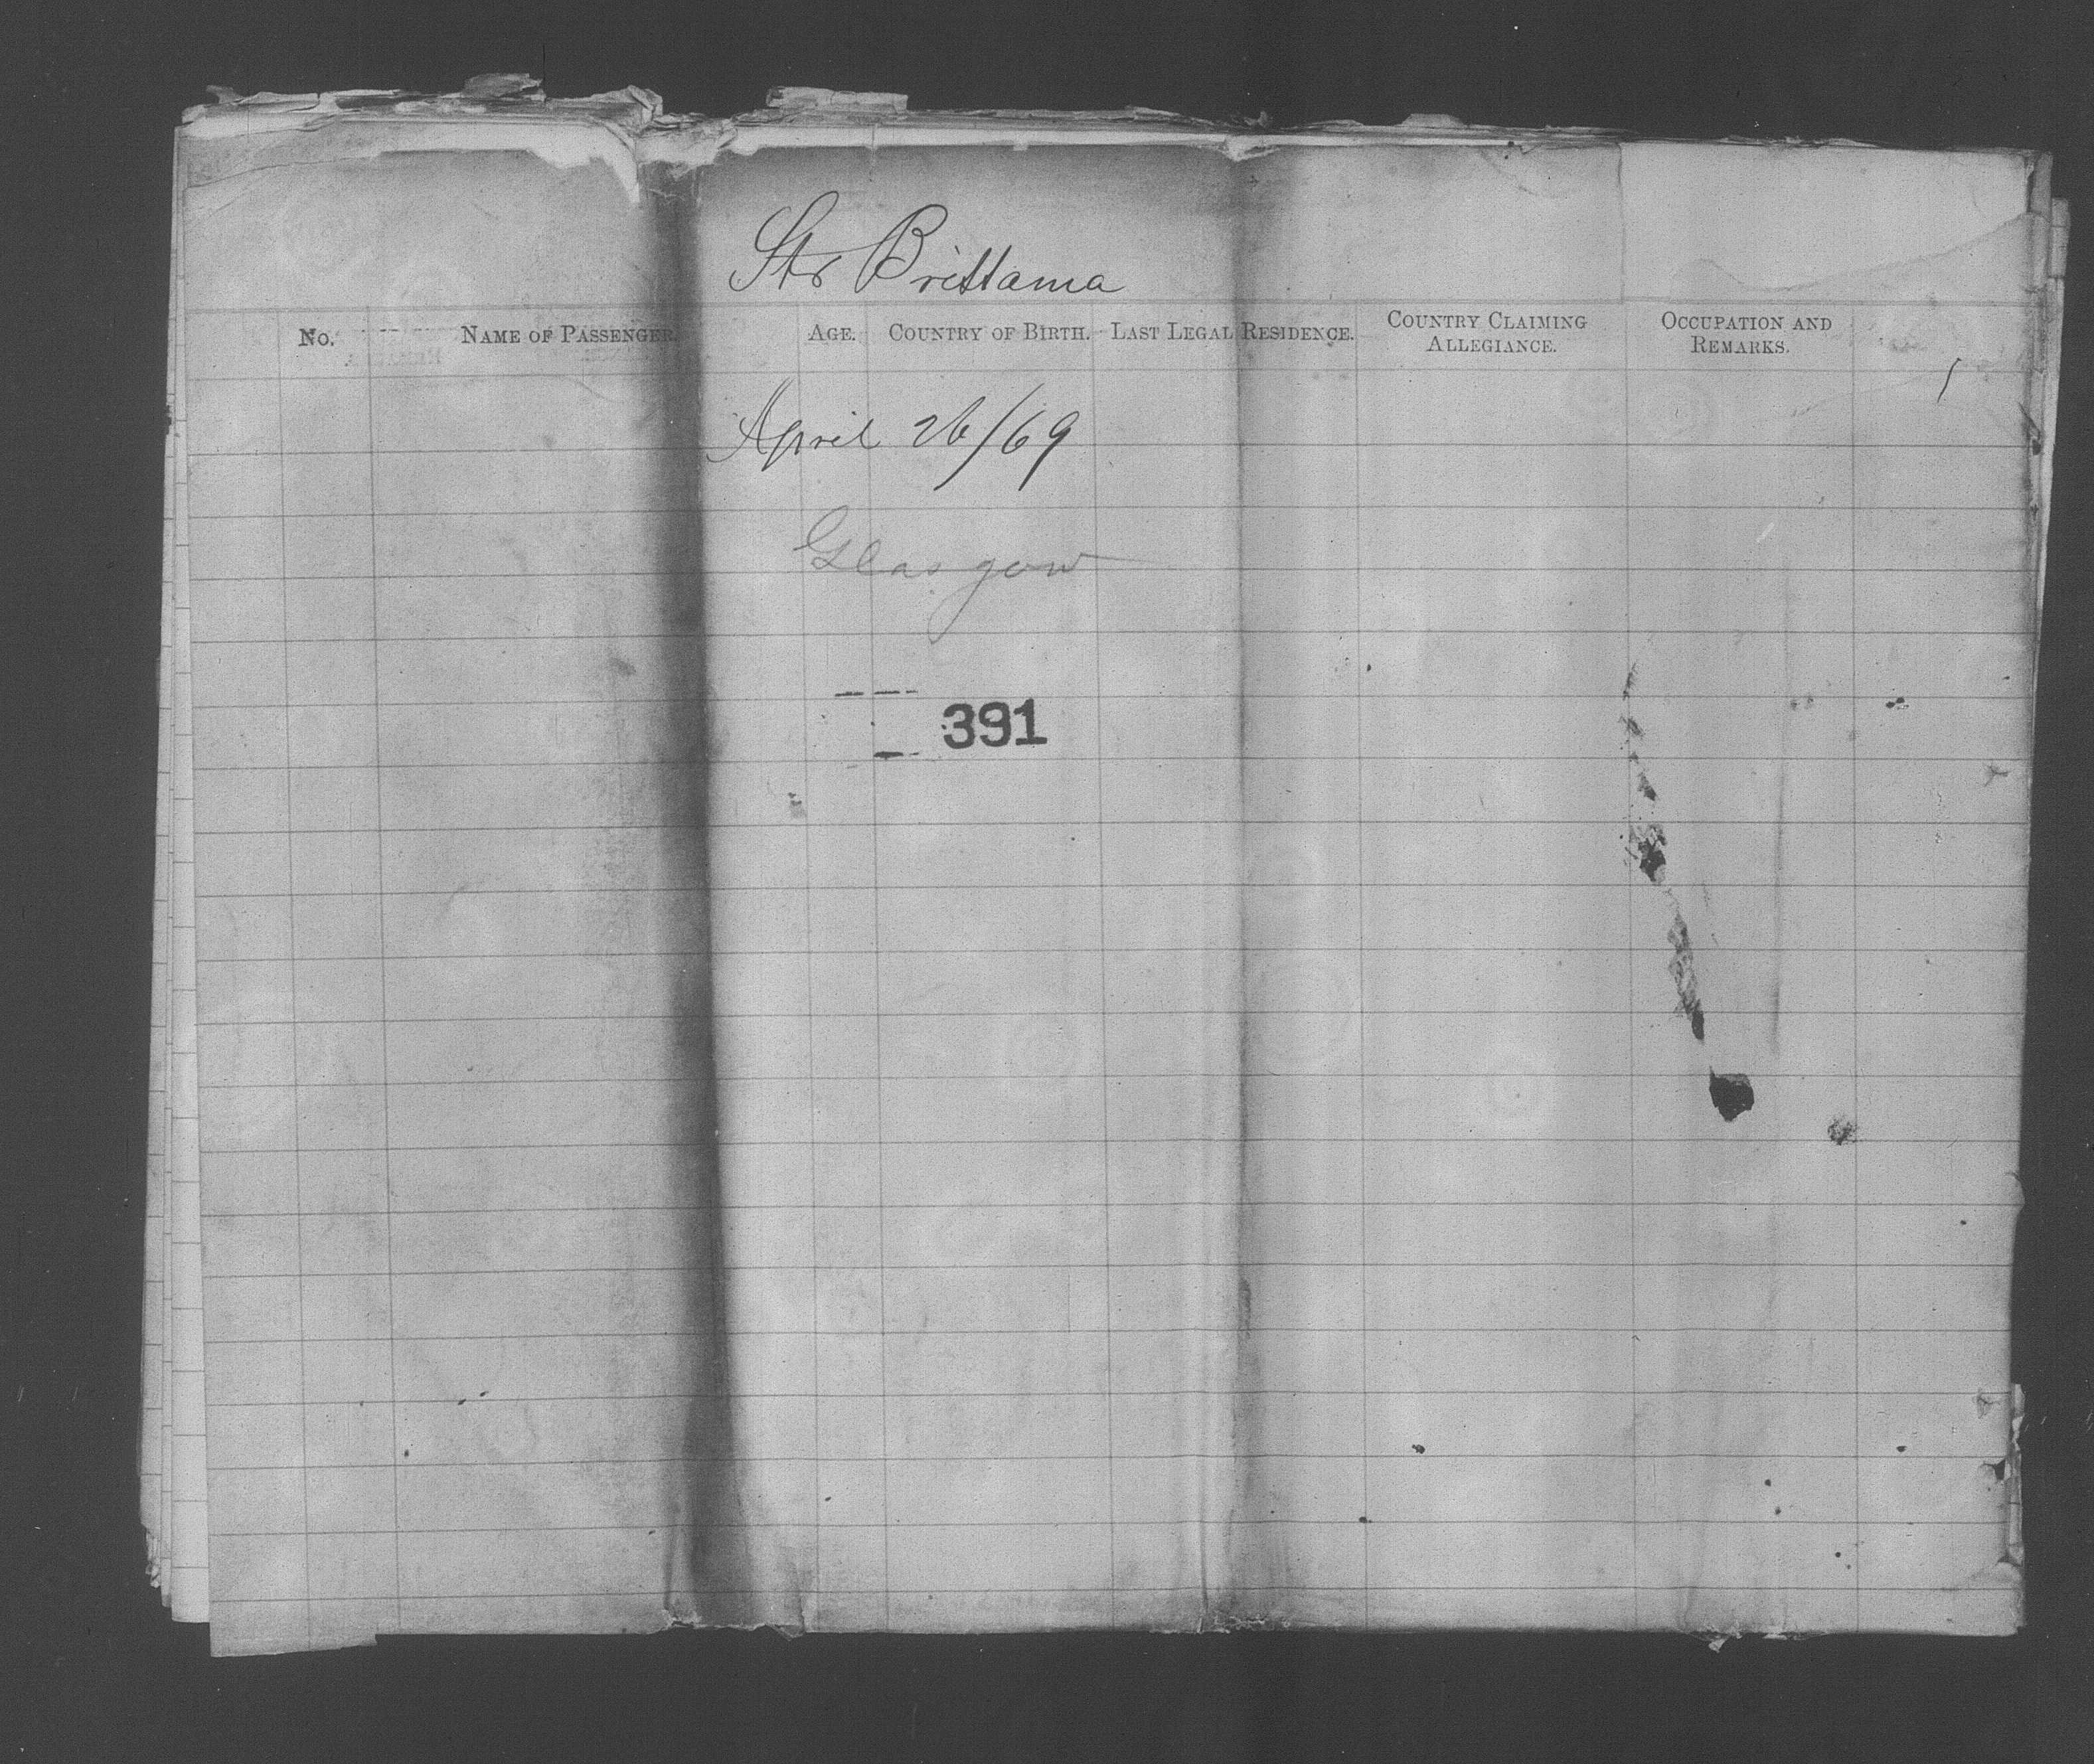 Str Brittania
No. NAME OF PASSENGER. AGE. COUNTRY OF BIRTH. LAST LEGAL RESIDENCE. COUNTRY CLAIMING ALLEGIANCE. OCCUPATION AND REMARKS.
April 26/69
Glasgow
391